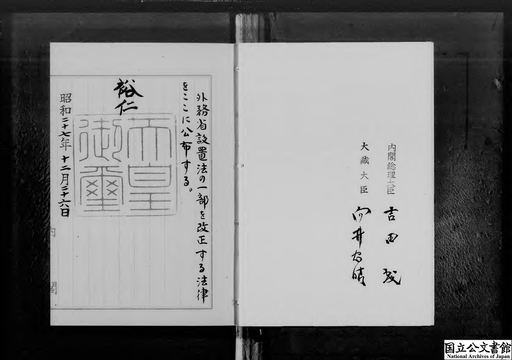 内閣総理大臣 吉田茂
大蔵大臣 向井忠晴
外務省設置法の一部を改正する法律
をここに公布する。
裕仁
天皇
御璽
昭和二十七年十二月二十六日
内閣
国立公文書館
National Archives of Japan